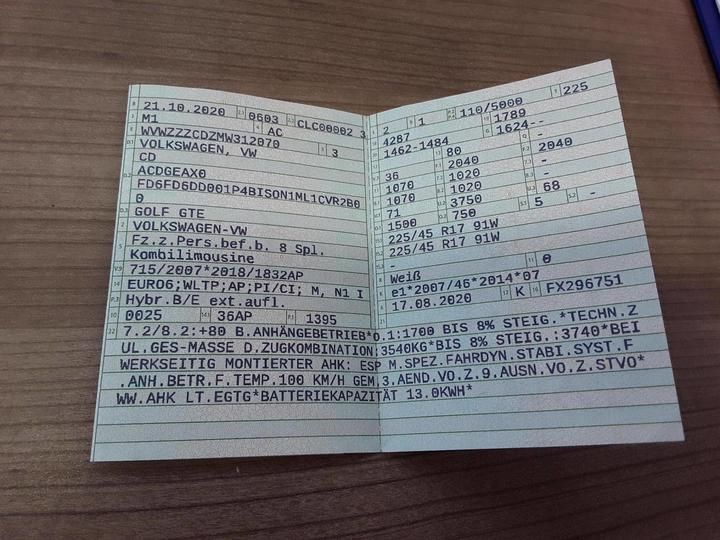 21.10.2020 0603 CLC00002 3
M1 AC
WVWZZZCDZMW312070 3
VOLKSWAGEN, VW
CD
ACDGEAX0
FD6FD6DD001P4BISON1ML1CVR2B0
0
GOLF GTE
VOLKSWAGEN-VW
Fz.z.Pers.bef.b. 8 Spl.
Kombilimousine
715/2007*2018/1832AP
EURO6;WLTP;AP;PI/CI; M, N1 I
Hybr.B/E ext.aufl.
0025 36AP 1395
2 1 110/5000 225
4287 1789
1462-1484 1624--
- 80 -
36 2040 2040
1070 1020 -
1070 1020 -
71 3750 68
1500 750 5 -
225/45 R17 91W
225/45 R17 91W
-
Weiß 0
e1*2007/46*2014*07
17.08.2020 K FX296751
7.2/8.2:+80 B.ANHÄNGEBETRIEB*O.1:1700 BIS 8% STEIG.*TECHN.Z
UL.GES-MASSE D.ZUGKOMBINATION:3540KG*BIS 8% STEIG.:3740*BEI
WERKSEITIG MONTIERTER AHK: ESP M.SPEZ.FAHRDYN.STABI.SYST.F
.ANH.BETR.F.TEMP.100 KM/H GEM.3.AEND.VO.Z.9.AUSN.VO.Z.STVO*
WW.AHK LT.EGTG*BATTERIEKAPAZITÄT 13.0KWH*